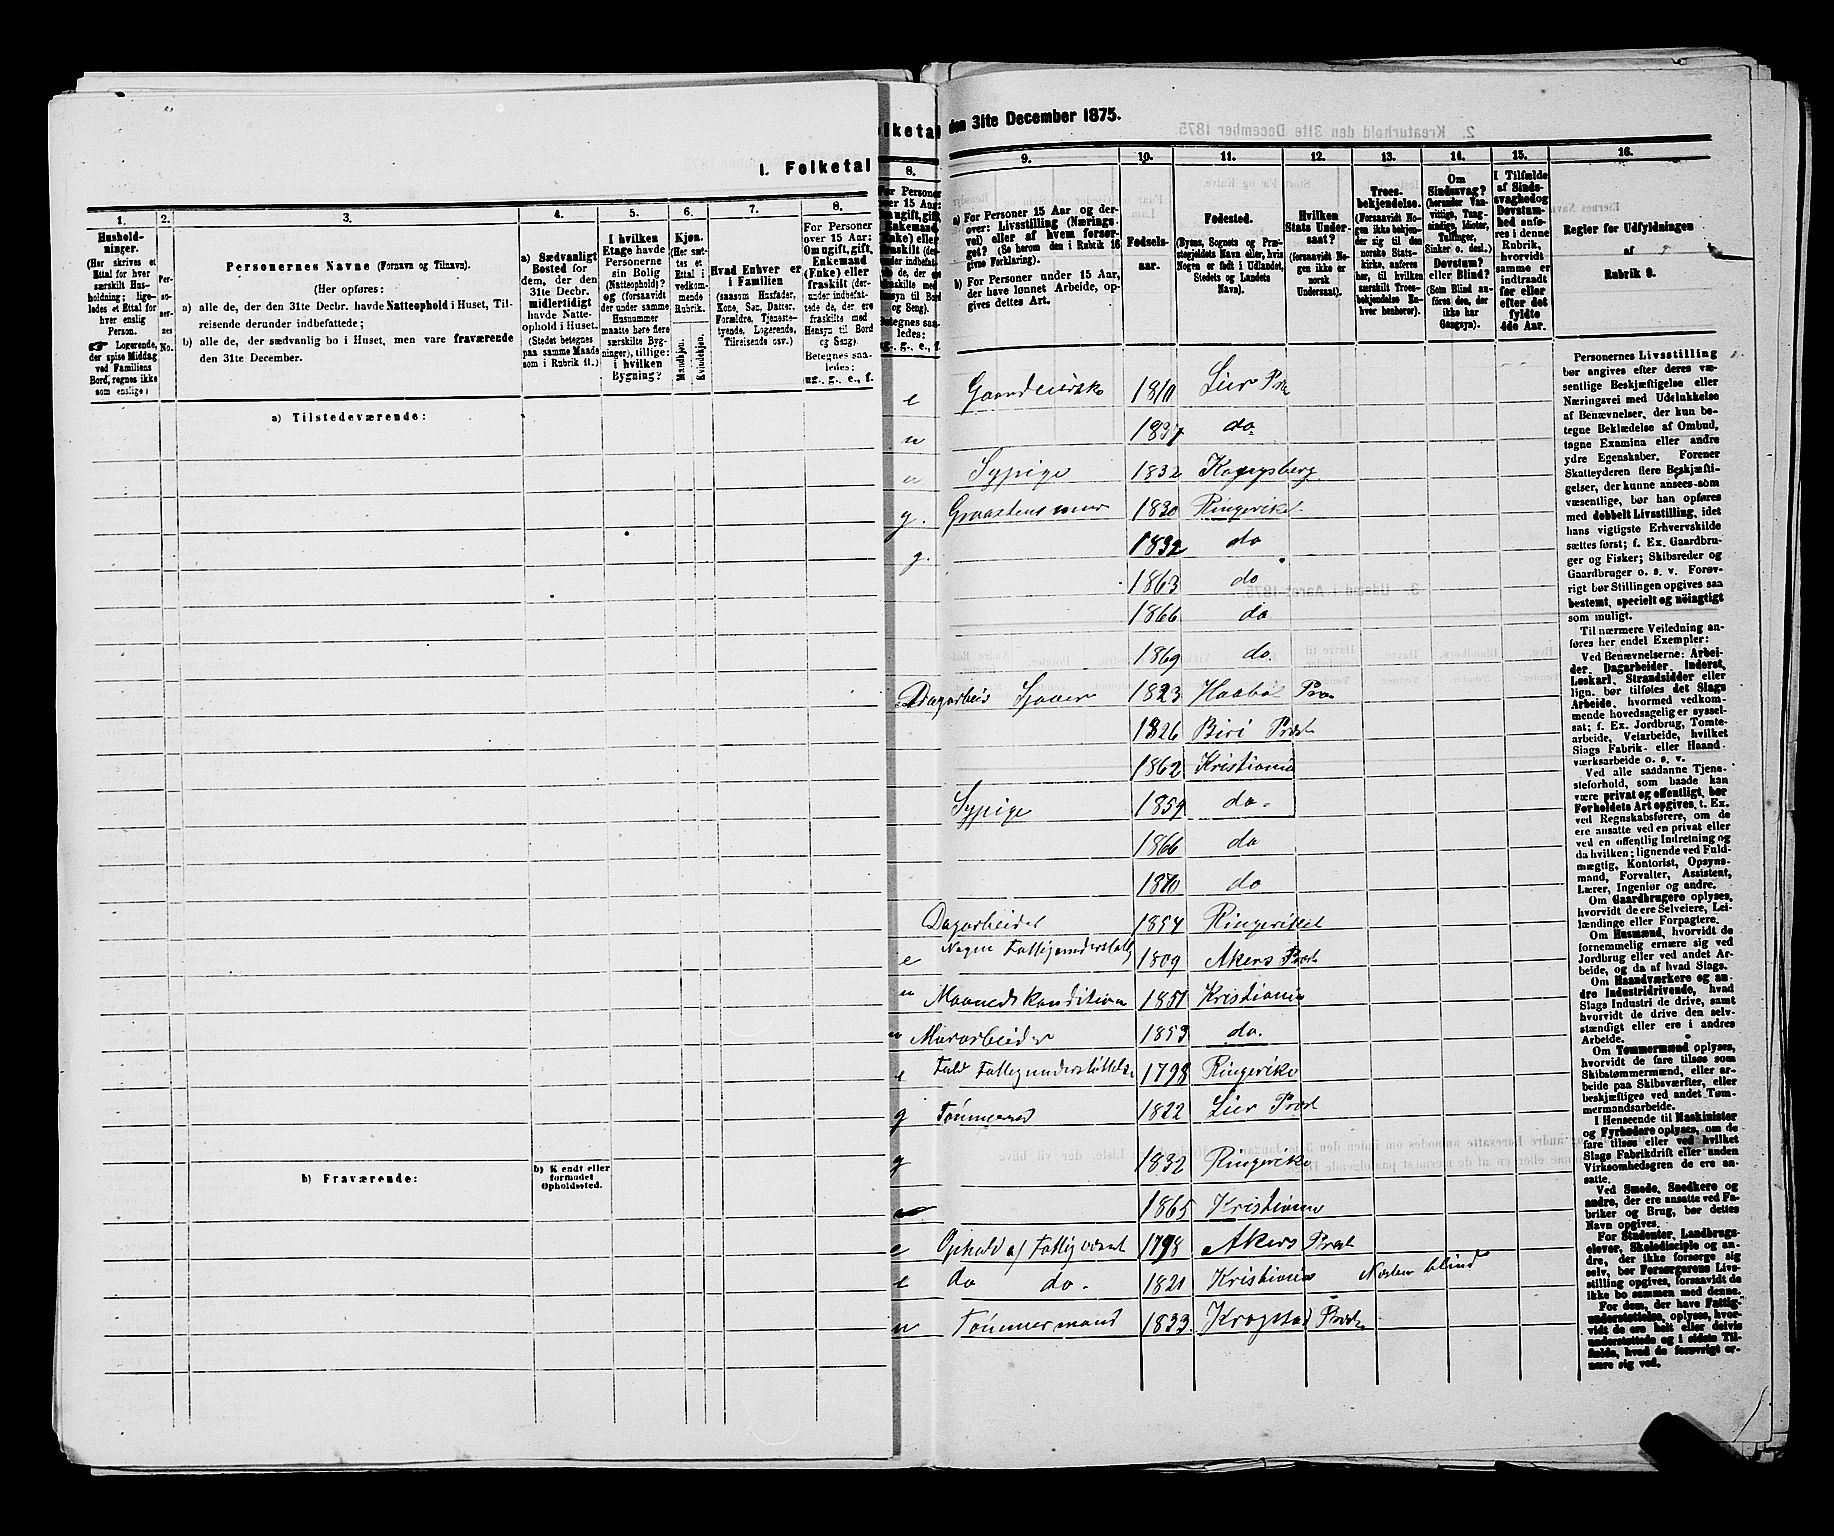 1. Folketal
1.
2.
3.
4.
5.
6.
7.
8.
Hushold-
ninger.
(Her skrives et
Ettal for hver
særskilt Hus-
holdning; lige-
ledes et Ettal for
hver enslig
Person.
☞ Logerende,
der spise Middag
ved Familiens
Bord, regnes ikke
som enslige)
Per-
so-
ner-
nes
No.
Personernes Navne (Fornavn og Tilnavn).
(Her opføres:
a) alle de, der den 31te Decbr. havde Natteophold i Huset, Til-
reisende derunder indbefattede;
b) alle de, der sædvanlig bo i Huset, men vare fraværende
den 31te December.
a) Sædvanligt
Bosted for
dem, der den
31te Decbr.
midlertidigt
havde Natte-
ophold i Huset.
(Stedet betegnes
paa samme Maade
som i Rubrik 11.)
I hvilken
Etage havde
Personerne
sin Bolig
(Natteophold)?
og (forsaavidt
der under samme
Husnummer
maatte høre flere
særskilte Byg-
ninger), tillige:
i hvilken
Bygning?
Kjøn.
(Her sæt-
tes et
Ettal i
vedkom-
mende
Rubrik.
Mandkjøn.
Kvindekjøn.
Hvad Enhver er
i Familien
(saasom Husfader,
Kone, Søn, Datter,
Forældre, Tjeneste-
tyende, Logerende,
Tilreisende osv.)
For Personer
over 15 Aar:
Om ugift, gift,
Enkemand
(Enke) eller
fraskilt (der-
under indbefat-
tede de, der ere
fraskilte med
Hensyn til Bord
og Seng).
Betegnes saa-
ledes:
ug., g., e., f.
a) Tilstedeværende:
b) Fraværende:
b) Kjendt eller
formodet
Opholdssted.
olketal
8.
den 31te December 1875.
9.
10.
11.
12.
13.
14.
15.
16.
a) For Personer 15 Aar og der-
over: Livsstilling (Nærings-
vei) eller af hvem forsør-
get? (Se herom den i Rubrik 16
givne Forklaring).
b) For Personer under 15 Aar,
der have lønnet Arbeide, op-
gives dettes Art.
Fødsels-
aar.
Fødested.
(Byens, Sognets og Præ-
stegjeldets Navn eller, hvis
Nogen er født i Udlandet,
Stedets og Landets
Navn).
Hvilken
Stats Under-
saat?
(forsaavidt No-
gen ikke er
norsk
Undersaat).
Troes-
bekjendelse.
(Forsaavidt No-
gen ikke bekjen-
der sig til den
norske Stats-
kirke, anføres
her, til hvilken
særskilt Troes-
bekjendelse En-
hver henhører).
Om
Sindssvag?
(herunder Van-
vittige, Tung-
sindige, Idioter,
Tullinger,
Sinker o. desl.)
Døvstum?
eller Blind?
(Som Blind an-
føres den, der
ikke har
Gangsyn).
I Tilfælde
af Sinds-
svaghed og
Døvstum-
hed anfø-
res i denne
Rubrik,
hvorvidt
samme er
indtraadt
før eller
efter det
fyldte
4de Aar.
Regler for Udfyldningen
af
Rubrik 9.
e Gaardeierske 1810 Lier Præ
u 1837 do
Sypige 1832 Kongsberg
g. Graastensmur 1830 Ringerike
g. 1832 do
1863 do
1866 do
1869 do.
Dagarbeid Sjauer 1823 Haabøl Præ
1826 Biri Præst
1862 Kristiania
Sypige 1859 do.
1866 do
1870 do
Dagarbeider 1854 Ringeriket
e Nogen Fattigunderstøtt 1809 Akers Præst
u Maanedskondition 1851 Kristiania
u Murarbeider 1853 do.
e Fuld Fattigunderstøttelse 1798 Ringerike
g Tømmermd 1822 Lier Præst
g 1832 Ringerike
1865 Kristiania
e Ophold af Fattigvæsnt 1798 Akers Præst
e do do. 1821 Kristiania Næsten blind
u Tømmermand 1833. Krogstad Præst.
Personernes Livsstilling
bør angives efter deres væ-
sentlige Beskjæftigelse eller
Næringsvei med Udelukkelse
af Benævnelser, der kun be-
tegne Beklædelse af Ombud,
tagne Examina eller andre
ydre Egenskaber. Forener
Skatteyderen flere Beskjæfti-
gelser, der kunne ansees som
væsentlige, bør han opføres
med dobbelt Livsstilling, idet
hans vigtigste Erhvervskilde
sættes først; f. Ex. Gaardbru-
ger og Fisker; Skibsreder og
Gaardbruger o. s. v. Forøv-
rigt bør Stillingen opgives saa
bestemt, specielt og nøiagtigt
som muligt.
Til nærmere Veiledning an-
føres her endel Exempler:
Ved Benævnelserne: Arbei-
der, Dagarbeider, Inderst,
Løskarl, Strandsidder eller
lign. bør tilføies det Slags
Arbeide, hvormed vedkom-
mende hovedsagelig er syssel-
sat; f. Ex. Jordbrug, Tomte-
arbeide, Veiarbeide, hvilket
Slags Fabrik- eller Haand-
værksarbeide o. s. v.
Ved alle saadanne Tjene-
steforhold, som baade kan
være privat og offentligt, bør
Forholdets Art opgives, t. Ex.
ved Regnskabsførere, om de
ere ansatte ved en privat eller
ved en offentlig Indretning og
da hvilken; lignende ved Fuld-
mægtig, Kontorist, Opsyns-
mand, Forvalter, Assistent,
Lærer, Ingeniør og andre.
Om Gaardbrugere oplyses,
hvorvidt de ere Selveiere, Lei-
lændinge eller Forpagtere.
Om Husmænd, hvorvidt de
fornemmelig ernære sig ved
Jordbrug eller ved andet Ar-
beide, og da af hvad Slags.
Om Haandværkere og an-
dre Industridrivende, hvad
Slags Industri de drive, samt
hvorvidt de drive den selv-
stændigt eller ere i andres
Arbeide.
Om Tømmermænd oplyses,
hvorvidt de fare tilsøs som
Skibstømmermænd, eller ar-
beide paa Skibsværfter, eller
beskjæftiges ved andet Tøm-
mermandsarbeide.
I Henseende til Maskinister
og Fyrbødere oplyses, om de
fare tilsøs eller ved hvilket
Slags Fabrikdrift eller anden
Virksomhedsgren de ere an-
satte.
Ved Smede, Snedkere og
andre, der ere ansatte ved Fa-
briker og Brug, bør dettes
Navn opgives.
For Studenter, Landbrugs-
elever, Skoledisciple og an-
dre, der ikke forsørge sig
selv, bør Forsørgerens Livs-
stilling opgives, forsaavidt de
ikke bo sammen med denne.
For dem, der have Fattig-
understøttelse, oplyses, hvor-
vidt de ere helt eller delvis
understøttede og i sidste Til-
fælde, hvad de forøvrigt er-
nære sig ved.